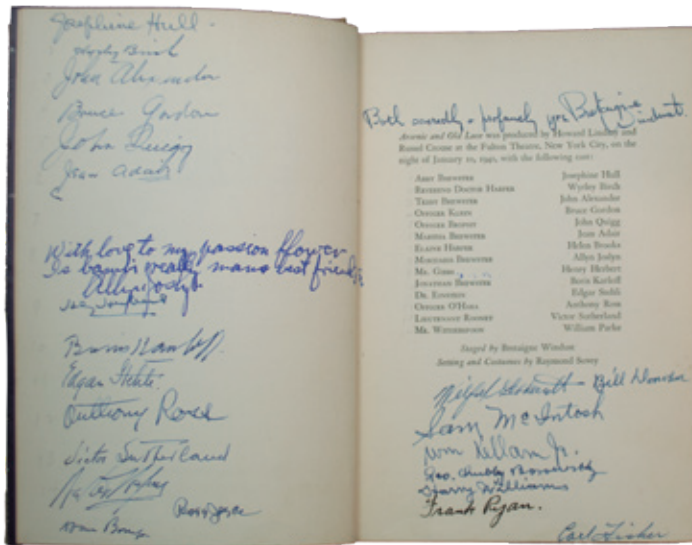 Josephine Hull
Wyrley Birch
John Alexander
Bruce Gordon
John Quigg
Jean Adair
With love to my passion flower
Is bambi really mans best friend?
Allyn Joslyn
Boris Karloff
Edgar Stehli
Anthony Ross
Victor Sutherland
Both sacredly & profanely yrs Bretaigne
Windust.
Arsenic and Old Lace was produced by Howard Lindsay and
Russel Crouse at the Fulton Theatre, New York City, on the
night of January 10, 1941, with the following cast:
Abby Brewster Josephine Hull
Reverend Doctor Harper Wyrley Birch
Teddy Brewster John Alexander
Officer Klein Bruce Gordon
Officer Brophy John Quigg
Martha Brewster Jean Adair
Elaine Harper Helen Brooks
Mortimer Brewster Allyn Joslyn
Mr. Gibbs Henry Herbert
Jonathan Brewster Boris Karloff
Dr. Einstein Edgar Stehli
Officer O'Hara Anthony Ross
Lieutenant Rooney Victor Sutherland
Mr. Witherspoon William Parke
Staged by Bretaigne Windust
Setting and Costumes by Raymond Sovey
Bill Donovan
Sam McIntosh
Wm Kellam Jr.
Geo. Chubby
Harry Williams
Frank Ryan.
Carl Fisher